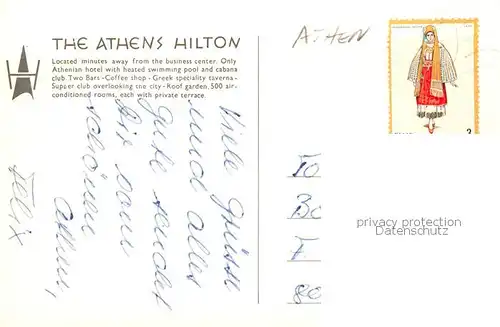 THE ATHENS HILTON
Located minutes away from the business center. Only
Athenian hotel with heated swimming pool and cabana
club. Two Bars - Coffee shop - Greek speciality taverna -
Supper club overlooking the city - Roof garden. 500 air-
conditioned rooms, each with private terrace.
ATHEN
Viele Grüsse
und alles
Gute sendet
Dir vom
schönen
Athen,
Felix
3
privacy protection
Datenschutz